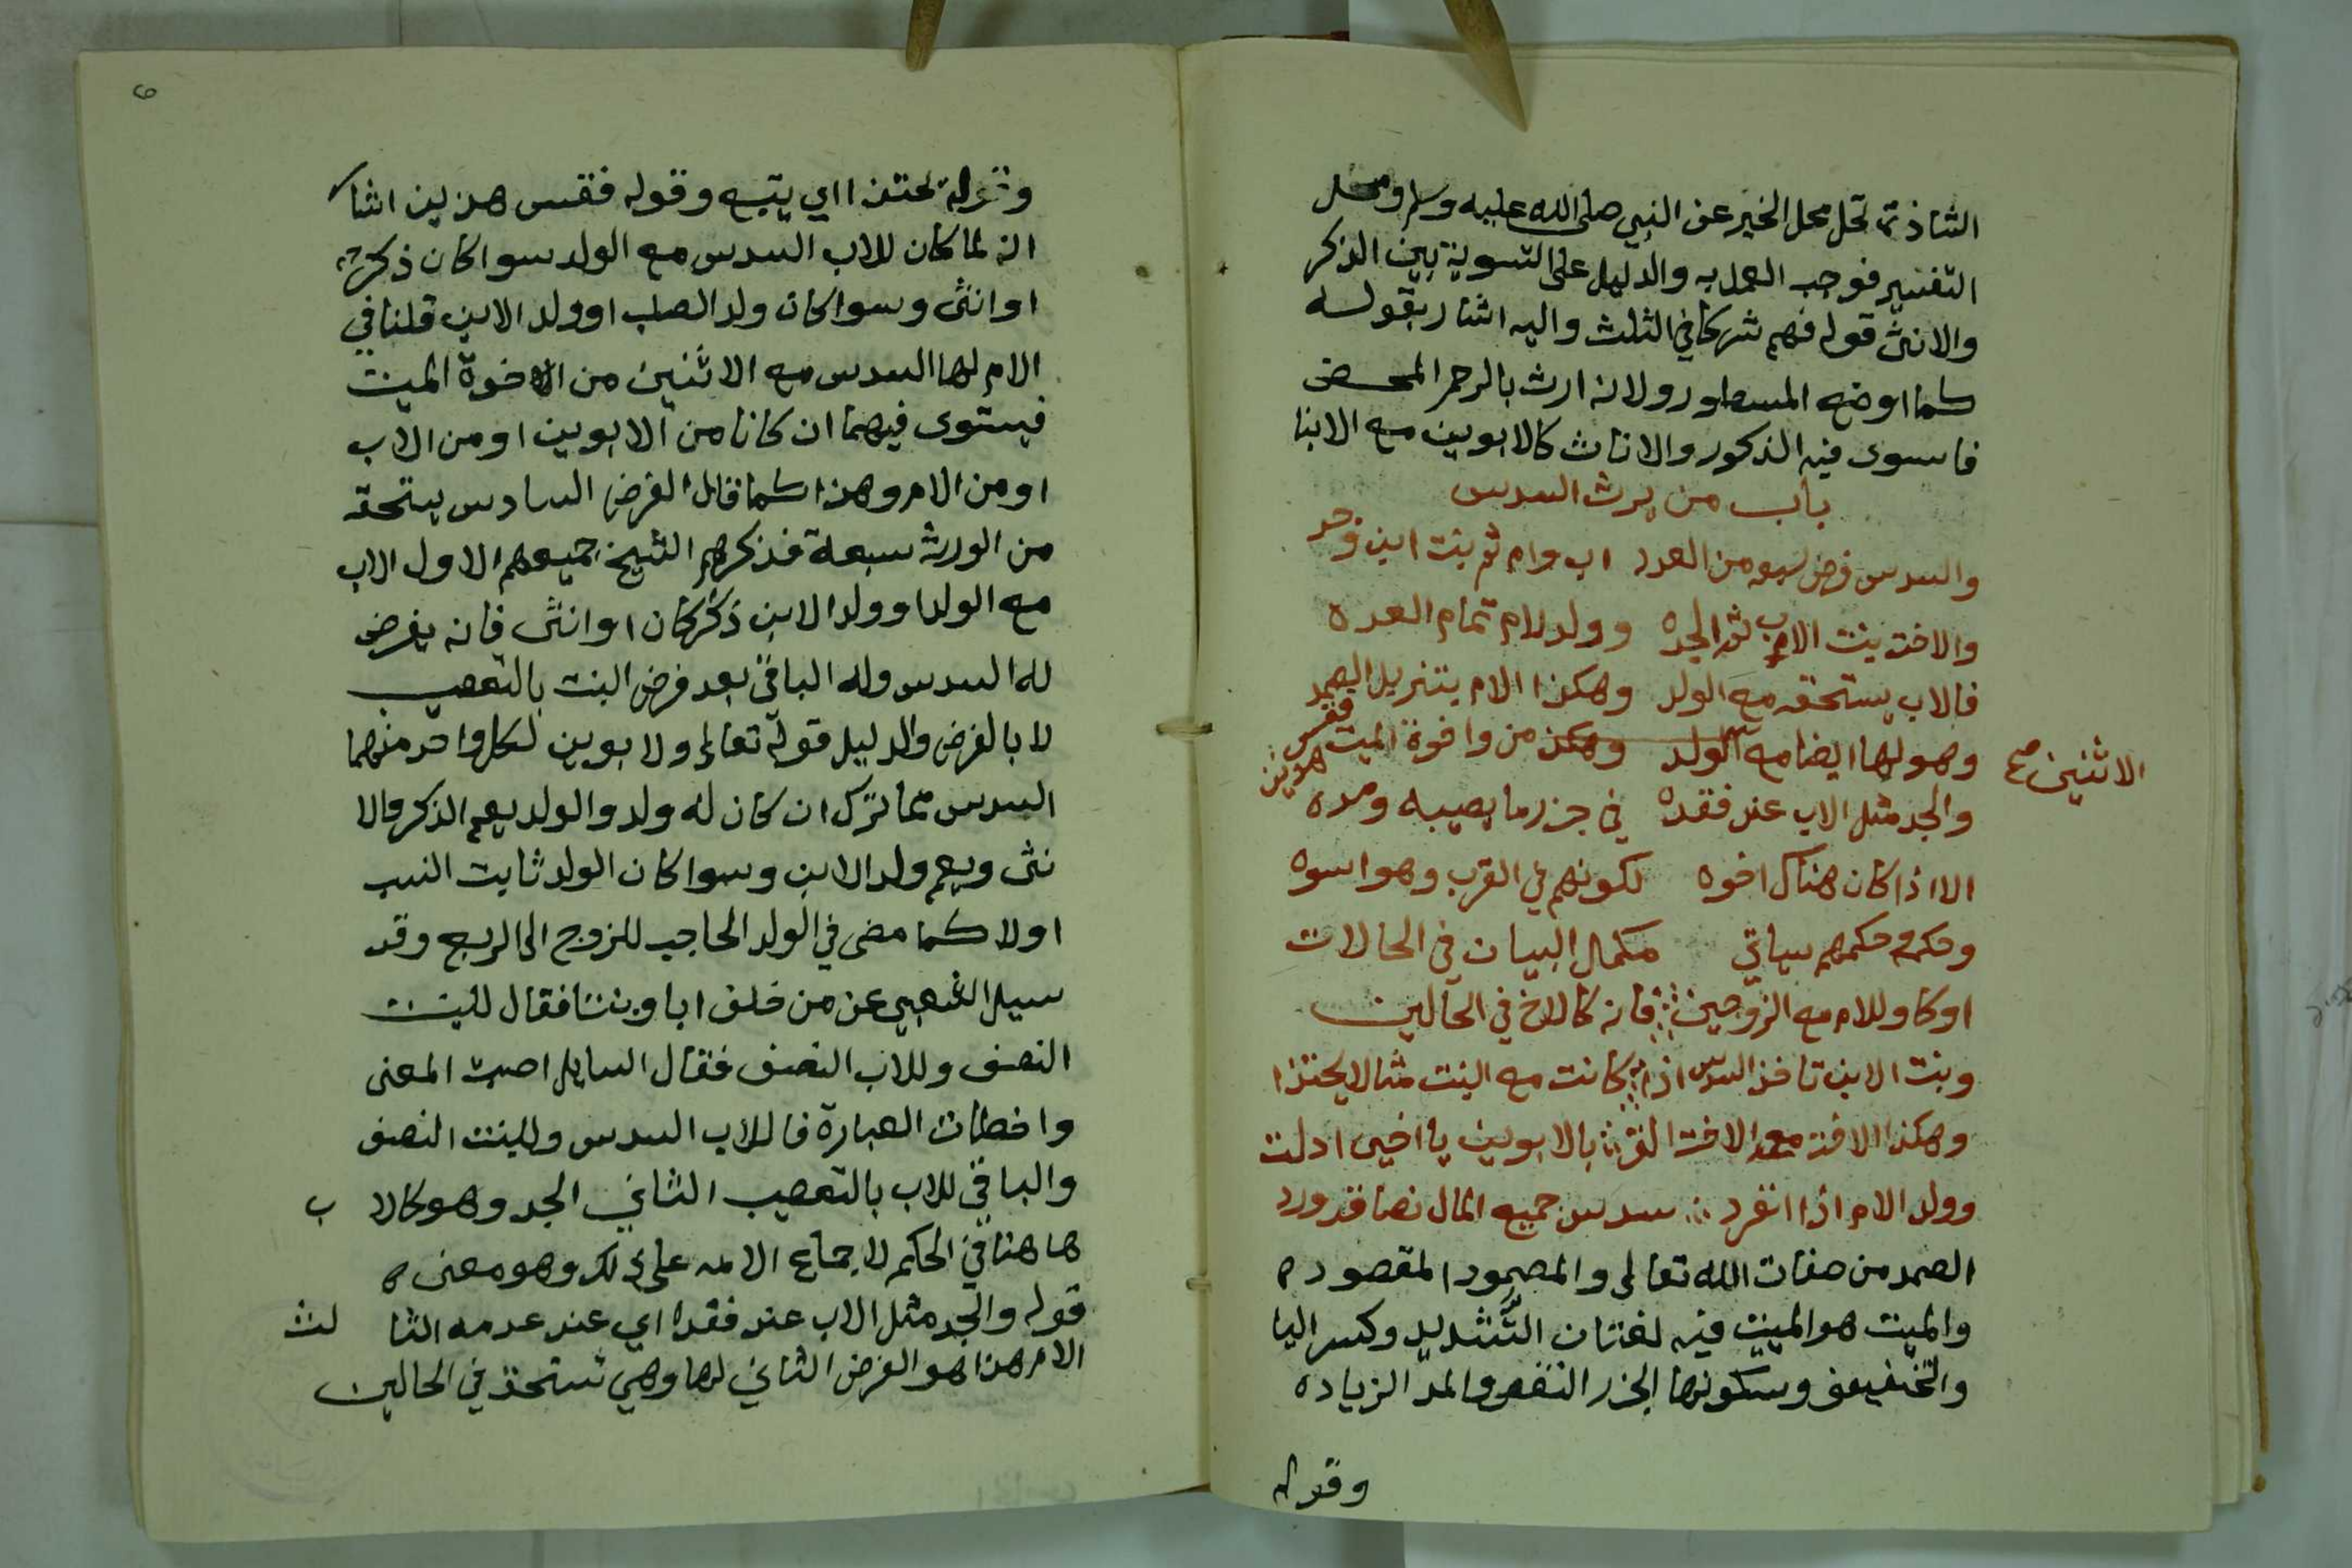 الشاذة تحل محل الخبر عن النبي صلى الله عليه وسلم ومحل
التفسير فوجب العمل به والدليل على التسوية بين الذكر
والانثى قوله فهم شركا في الثلث واليه اشار بقوله
كما اوضح المسطور ولانه ارث بالرحم المحض
فاستوى فيه الذكور والاناث كالابوين مع الابنا
باب من يرث السدس
والسدس فرض سبعه من العدد اب وام ثم بنت ابن وجد
والاخت بنت الاب ثم الجده وولد للام تمام العده
فالاب يستحقه مع الولد وهكذا الام بتنزيل الصمد
وهو لها ايضا مع الاثنين من اخوة الميت فقس هذين
الاثنين صح
والجد مثل الاب عند فقده في جزر ما يصيبه ومده
الا اذا كان هناك اخوه لكونهم في القرب وهو اسوه
وحكمه وحكمهم سياتي مكمل البيان في الحالات
او كا وللام مع الزوجين فانه كالاخ في الحالين
وبنت الابن تاخذ السدس اذا كانت مع البنت مثالا يحتذا
وهكذا الاخت مع الاخت التي بالابوين يا اخي ادلت
وولد الام اذا انفرد سدس جميع المال نصا قد ورد
الصمد من صفات الله تعالى والمصمود المقصود ه
والميت هو الميت فيه لغتان التشديد وكسر اليا
والتخفيف وسكونها الجزر النقص والمد الزيادة
وقوله
٦
وقوله يحتذا اي يتبع وقوله فقس هذين اشا
انه لما كان للاب السدس مع الولد سوا كان ذكر
او انثى وسوا كان ولد الصلب او ولد الابن قلنا في
الام لها السدس مع الاثنين من اخوة الميت
فيستوى فيهما ان كانا من الابوين او من الاب
او من الام وهذا كما قال الفرض السادس يستحقه
من الورثة سبعة فذكرهم الشيخ جميعهم الاول الاب
مع الولد او ولد الابن ذكر كان او انثى فانه يفرض
له السدس وله الباقي بعد فرض البنت بالتعصيب
لا بالفرض والدليل قوله تعالى ولابوين لكل واحد منهما
السدس مما ترك ان كان له ولد والولد يعم الذكر والا
نثى ويعم ولد الابن وسوا كان الولد ثابت النسب
اولا كما مضى في الولد الحاجب للزوج الى الربع وقد
سيل الشعبي عن من خلف ابا وبنتا فقال للبنت
النصف وللاب النصف فقال السايل اصبت المعنى
واخطات العبارة فاللاب السدس وللبنت النصف
والباقي للاب بالتعصيب الثاني الجد وهو كالا ب
هاهنا في الحكم لاجماع الامه على ذلك وهو معنى ه
قوله والجد مثل الاب عند فقده اي عند عدمه الثا لث
الام هذا هو الفرض الثاني لها وهي تستحقه في الحالين